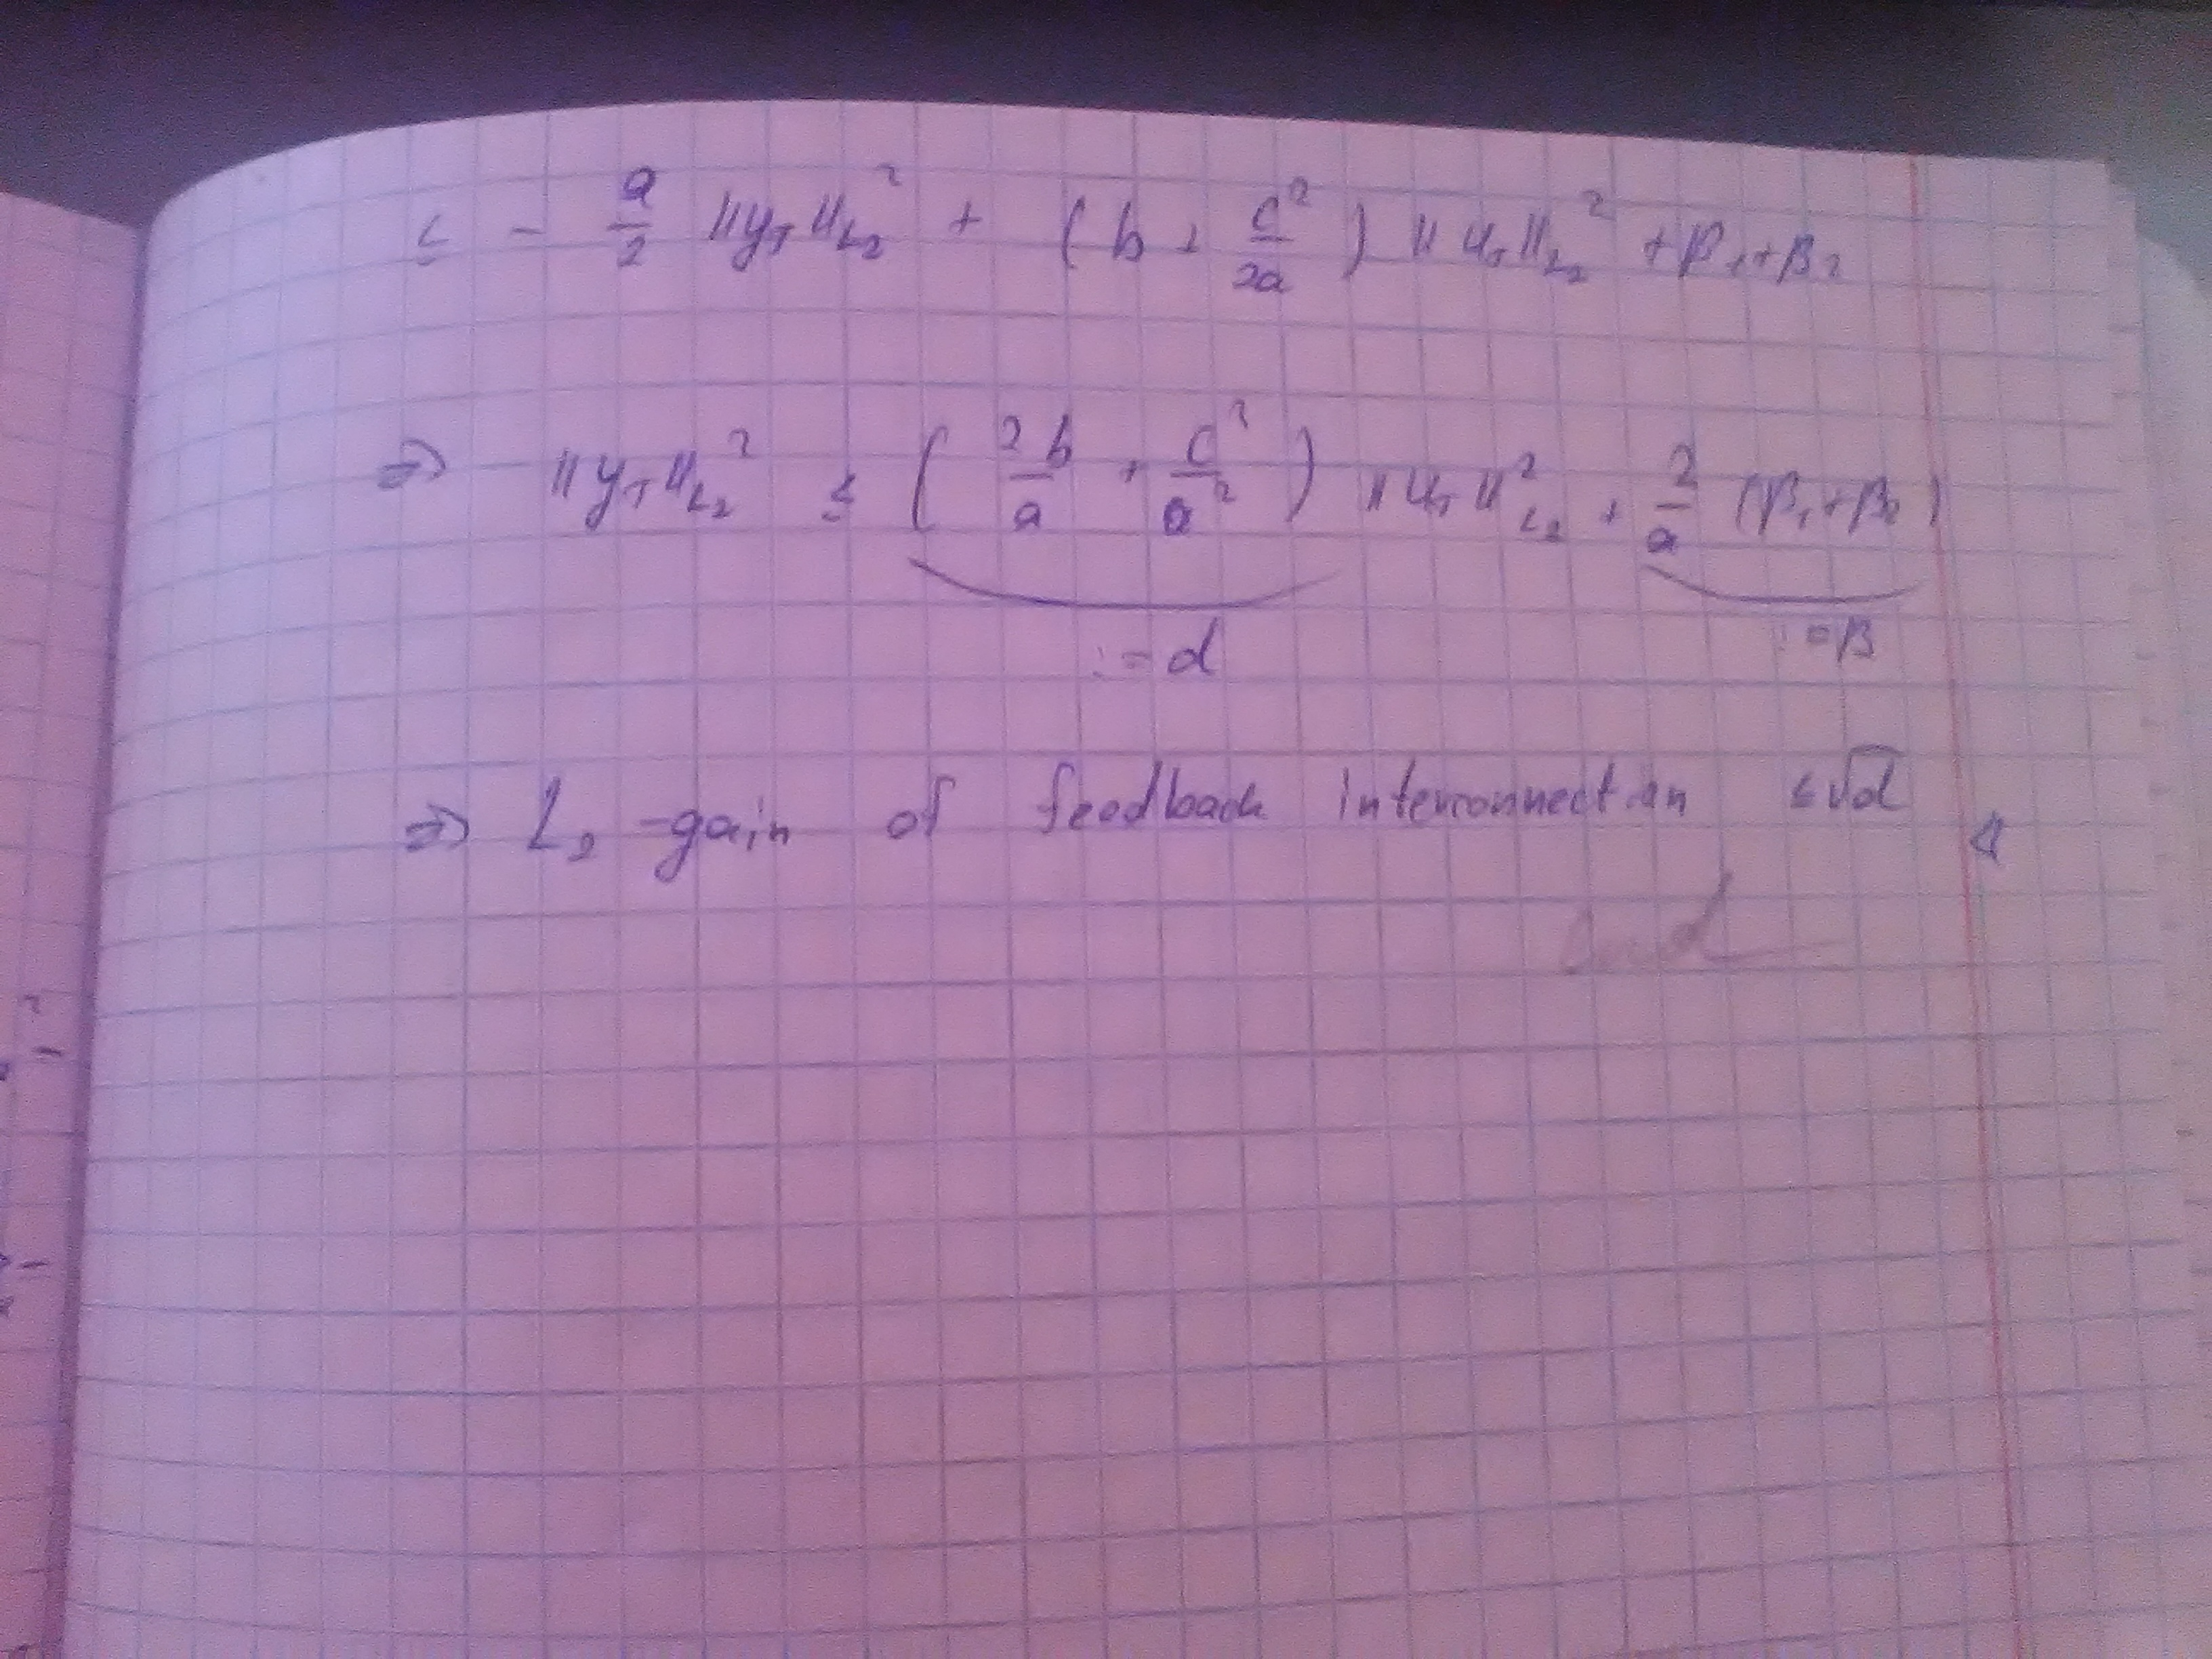 ≤ - a/2 ||y_T||_{L_2}^2 + (b + c^2/2a) ||u_T||_{L_2}^2 + β_1 + β_2
⇒ ||y_T||_{L_2}^2 ≤ (2b/a + c^2/a^2) ||u_T||_{L_2}^2 + 2/a (β_1 + β_2)
:= d := β
⇒ L_2 -gain of feedback interconnection ≤ √d ◁